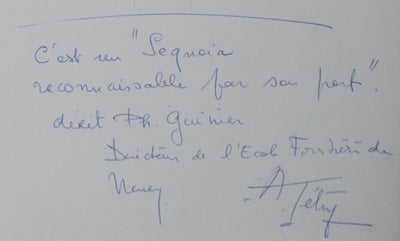 C'est un "Sequoia
reconnaissable par son port".
dixit Ph. Guinier
Directeur de l'Ecole Forestière de
Nancy.
A. Tétry